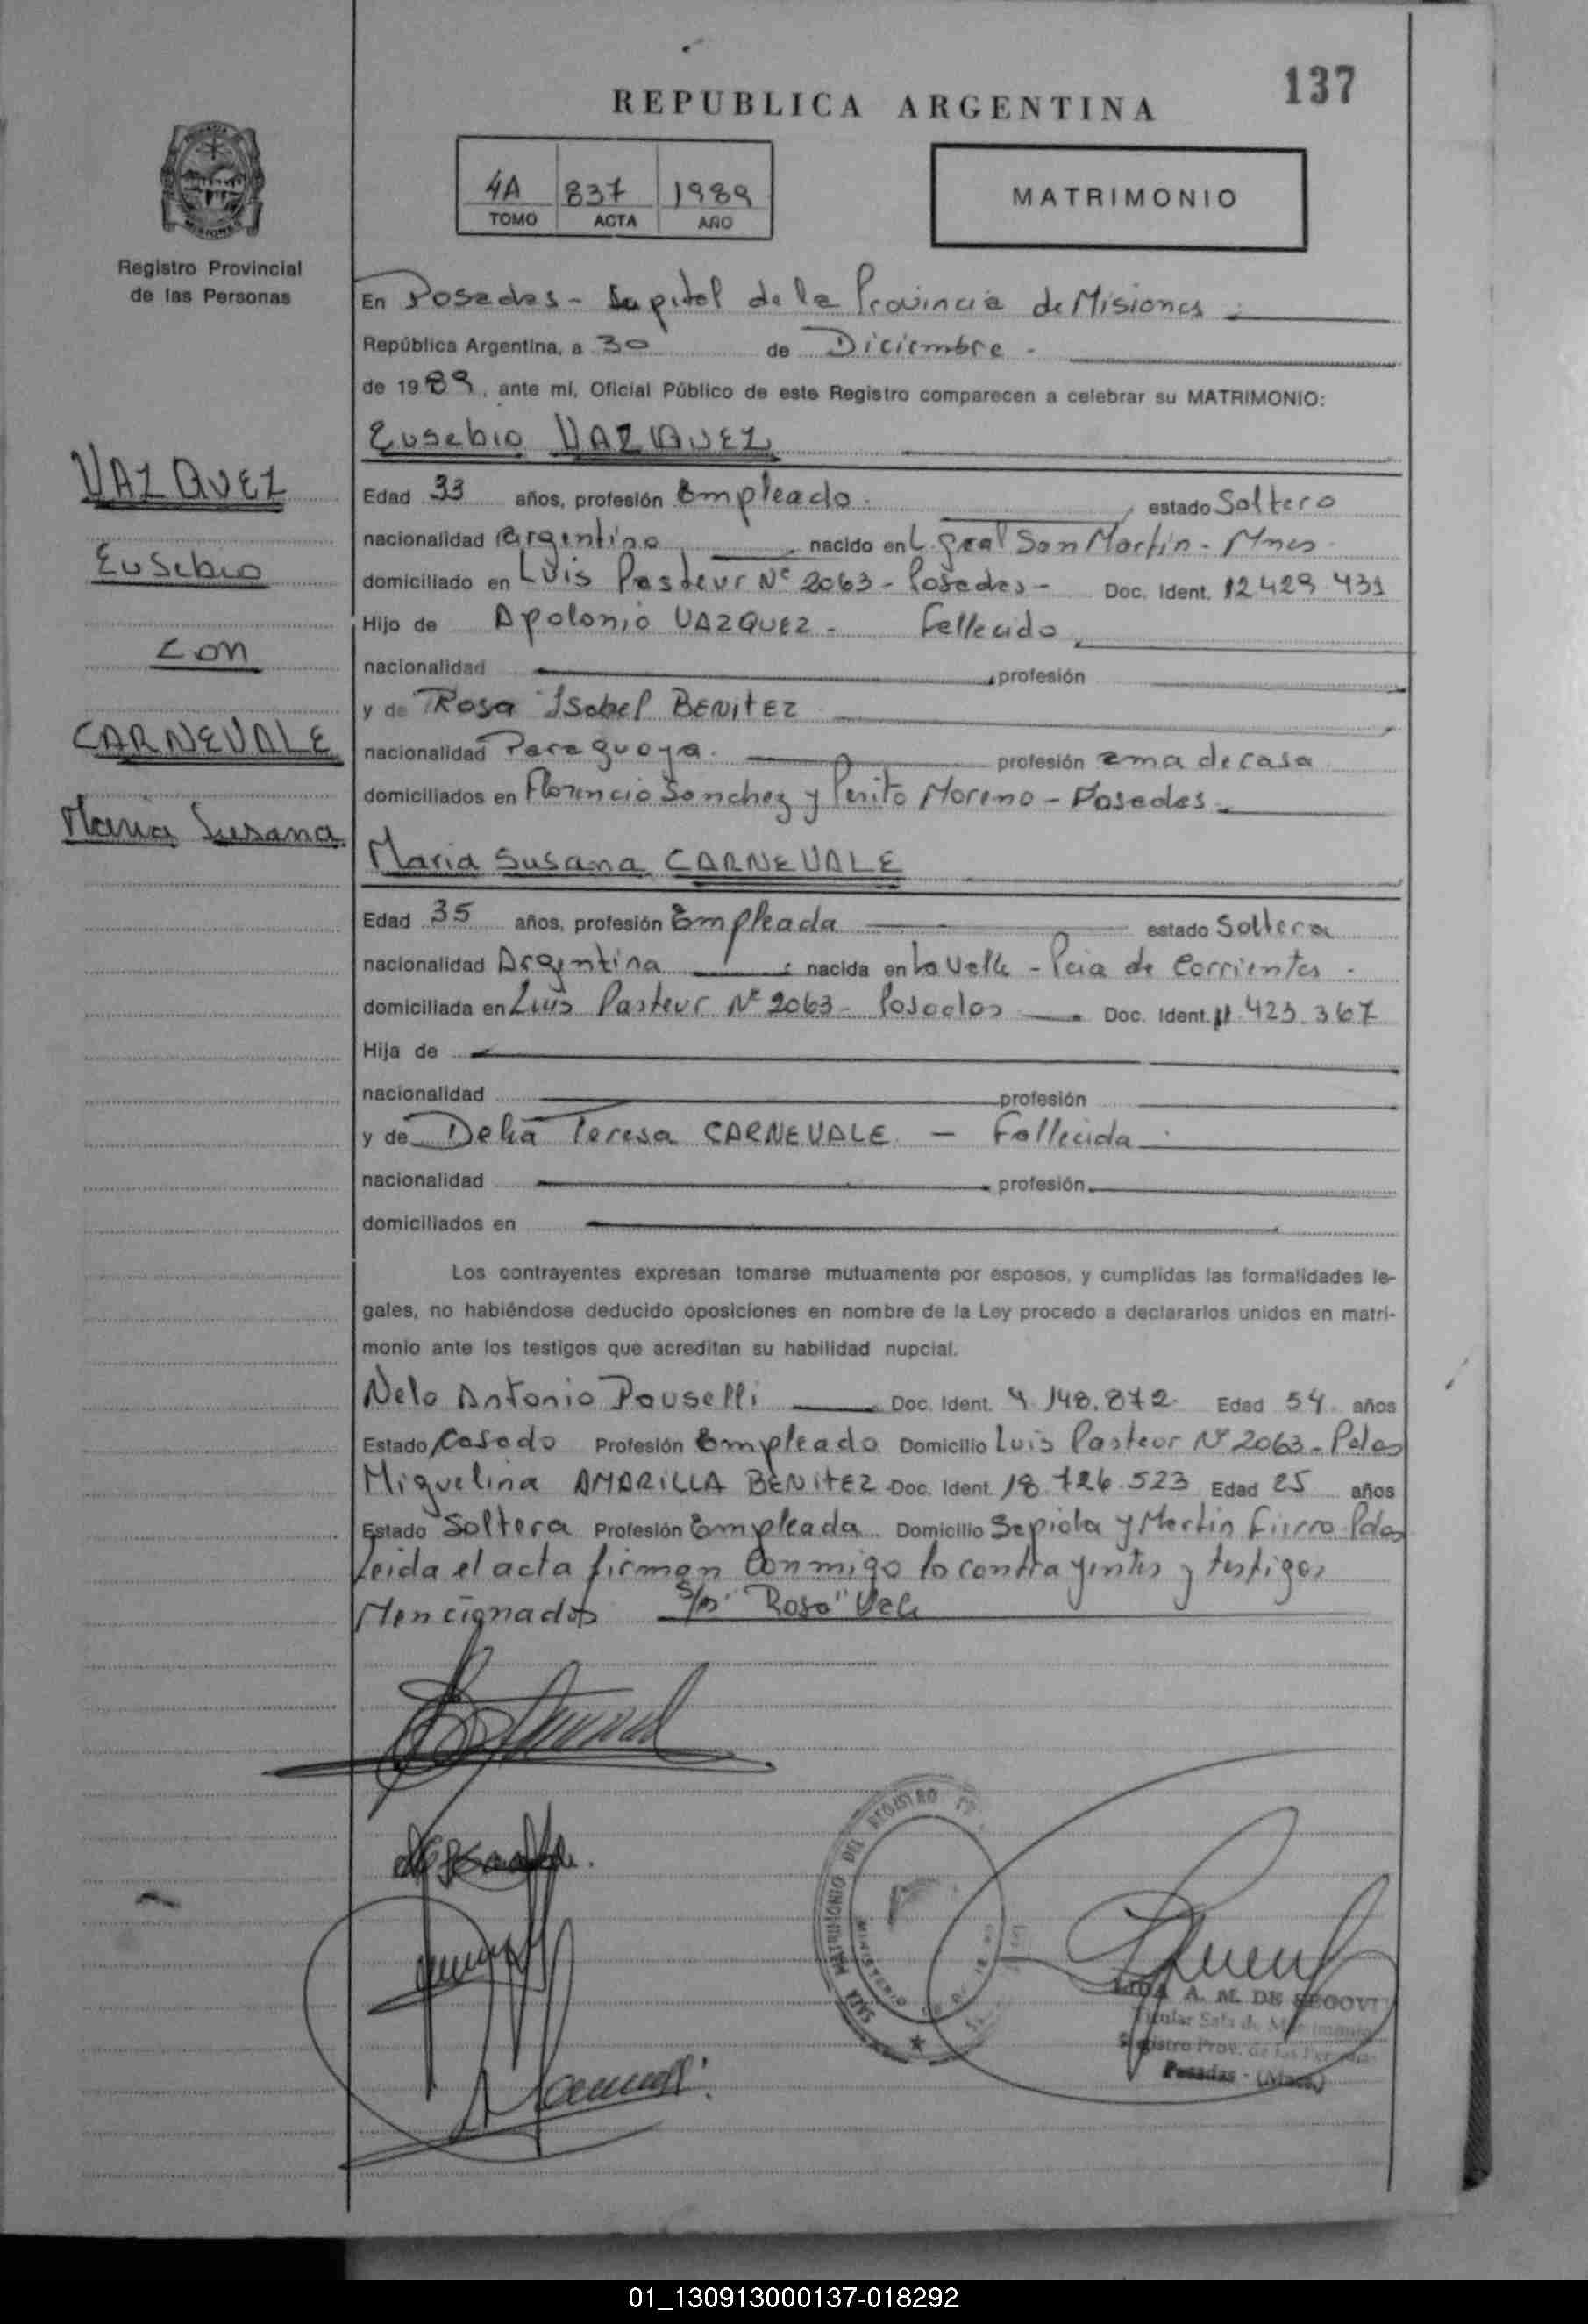 137
REPUBLICA ARGENTINA
4A 837 1989
TOMO ACTA AÑO
MATRIMONIO
Registro Provincial
de las Personas
En Posadas - Capital de la Provincia de Misiones
República Argentina, a 30 de Diciembre -
de 1989, ante mí, Oficial Público de este Registro comparecen a celebrar su MATRIMONIO:
Eusebio VAZQUEZ
VAZQUEZ
Eusebio
con
CARNEVALE
Maria Susana
Edad 33 años, profesión Empleado. estado Soltero
nacionalidad argentino nacido en L. Gral San Martin - Mnes
domiciliado en Luis Pasteur Nº 2063 - Posadas - Doc. Ident. 12.429.431
Hijo de Apolonio VAZQUEZ - Fallecido
nacionalidad profesión
y de Rosa Isabel BENITEZ
nacionalidad Paraguaya. profesión ama de casa
domiciliados en Florencio Sanchez y Perito Moreno - Posadas
Maria Susana CARNEVALE
Edad 35 años, profesión Empleada estado Soltera
nacionalidad Argentina nacida en - Pcia de Corrientes -
domiciliada en Luis Pasteur Nº 2063 - Posadas Doc. Ident. 11.423.367
Hija de
nacionalidad profesión
y de Delia Teresa CARNEVALE - Fallecida
nacionalidad profesión
domiciliados en
Los contrayentes expresan tomarse mutuamente por esposos, y cumplidas las formalidades le-
gales, no habiéndose deducido oposiciones en nombre de la Ley procedo a declararlos unidos en matri-
monio ante los testigos que acreditan su habilidad nupcial.
Nelo Antonio Pauselli Doc. Ident. 4.148.872. Edad 54 años
Estado Casado Profesión Empleado Domicilio Luis Pasteur Nº 2063 - Pdas
Miguelina AMARILLA BENITEZ Doc. Ident. 18.726.523 Edad 25 años
Estado Soltera Profesión Empleada Domicilio Sapiola y Martin Fierro Pdas
Leida el acta firman conmigo lo contrayentes y testigos
Mencionados "Rosa" Vale
SALA MATRIMONIO DEL REGISTRO
A. M. DE SEGOVI
Titular Sala de Matrimonio
Registro Prov. de las Personas
Posadas - (Mnes.)
01_130913000137-018292